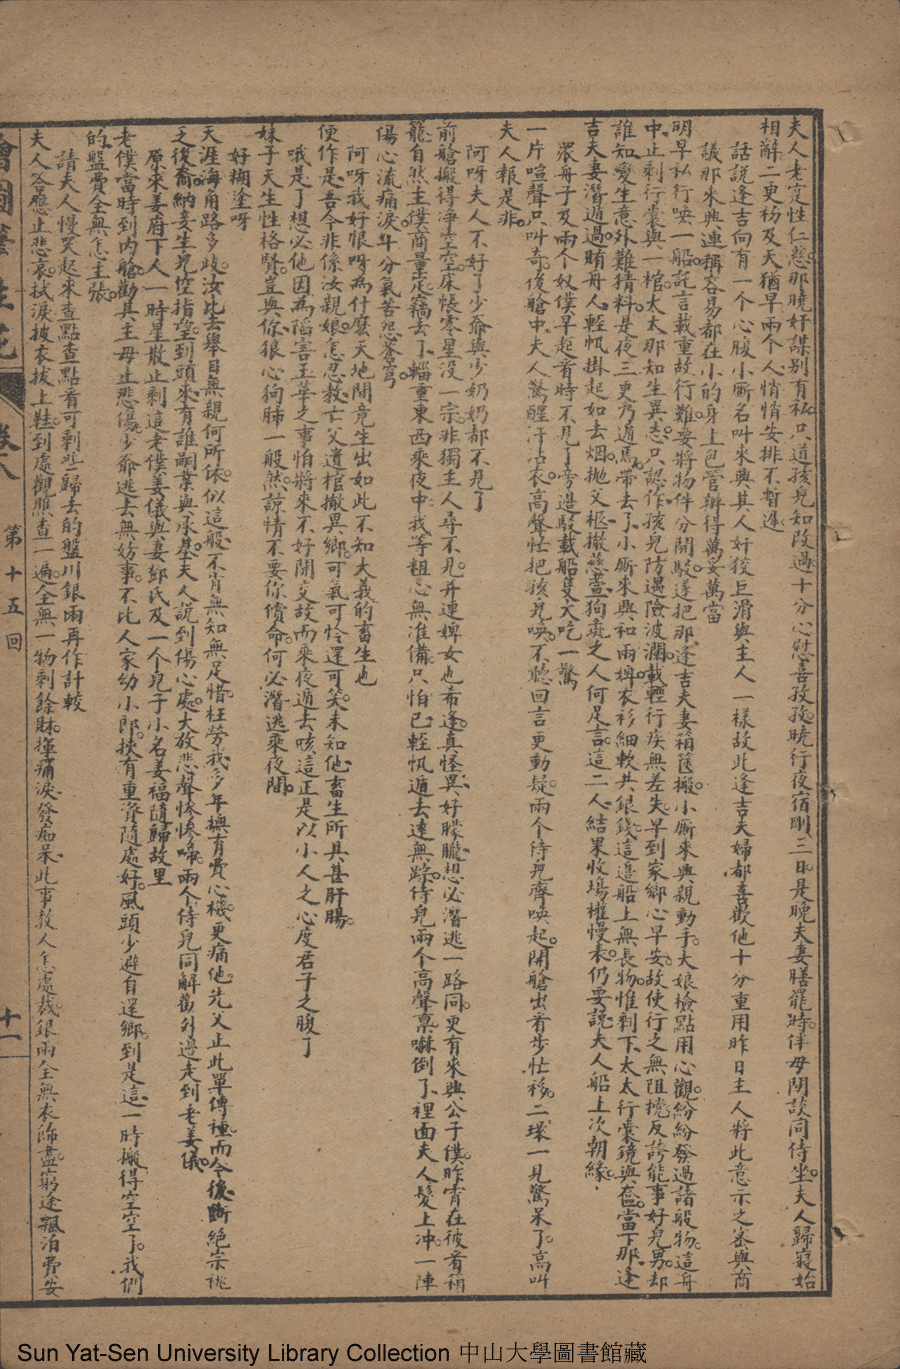 夫人老寔性仁慈那曉奸謀别有私只道孩兒知改過十分心慰喜孜孜曉行夜宿剛三日是晚夫妻膳罷時伴母閒談同侍坐夫人歸寢始
相辭二更初及天猶早兩个人悄悄安排不暫遲
話說逢吉向有一个心腹小厮名叫來興其人奸狡巨滑與主人一樣故此逢吉夫婦都喜歡他十分重用昨日主人將此意示之密與商
議那來興連稱容易都在小的身上包管辦得萬妥萬當
明早私行喚一船託言載重故行難要將物件分開駁遂把那逢吉夫妻箱篋搬小厮來興親動手大娘檢點用心觀紛紛發過諸般物這舟
中止剩行囊與一棺太太那知生異志只認作孩兒防遇險波瀾載輕行疾無差失早到家鄉心早安故使行之無阻撓反誇能事好兒男却
誰知愛生意外難猜料是夜三更乃遁馬帶去了小厮來興和兩婢衣衫細軟共銀錢這邊船上無長物惟剩下太太行囊鏡與奩當下那逢
吉夫妻潛遁過賄舟人輕帆掛起如去烟抛父柩撇慈萱狗彘之人何足言這二人結果收塲權慢表仍要說夫人船上次朝緣
眾舟子及兩个奴僕早起看時不見了旁邊駁載船隻大吃一驚
一片喧聲只叫奇後艙中夫人驚醒汗沾衣高聲忙把孩兒喚不聽回言更動疑兩个侍兒齊喚起開艙出看步忙移二環一見驚呆了高叫
夫人報是非
阿呀夫人不好了少爺與少奶奶都不見了
前艙搬得凈空空床帳零星没一宗非獨主人尋不見并連婢女也希逢真怪異好朦朧想必潛逃一路同更有來興公子僕昨宵在彼看箱
籠自然主僕商量定竊去了輜重東西乘夜中我等粗心無准備只怕已輕帆遁去達無踪侍兒兩个高聲禀嚇倒了裡面夫人髮上冲一陣
傷心流痛淚半分氣苦怨蒼穹
阿呀我好恨呀為什麽天地間竟生出如此不知大義的畜生也
便作是吾今非係汝親娘怎忍教亡父遺棺撇異鄉可氣可怜還可笑未知他畜生所具甚肝腸
哦是了想必他因為陷害王華之事怕將來不好閒父故而乘夜遁去咳這正是以小人之心度君子之腹了
妹子天生性格賢豈與你狼心狗肺一般然諒情不要你償命何必潛逃乘夜間
好糊塗呀
天涯海角路多歧汝此去舉目無親何所依似這般不肖無知無足惜枉勞我多年撫育費心機更痛他先父止此單傳種而今後斷絕宗祧
乏後裔納妾生兒空指望到頭來有誰嗣業與承基夫人說到傷心處大放悲聲慘慘啼兩个侍兒同解勸外邊走到老姜儀
原來姜府下人一時星散止剩這老僕姜儀與妻鄒氏及一个兒子小名姜福隨歸故里
老僕當時到内艙勸其主母止悲傷少爺逃去無妨事不比人家幼小郎挾有重資隨處好風頭少避自還鄉到是這一時搬得空空了我們
的盤費全無怎主張
請夫人慢哭起來查點查點看可剩些歸去的盤川銀兩再作計較
夫人答應止悲哀拭淚披衣拔上鞋到處觀照查一遍全無一物剩餘財揮痛淚發痴呆此事教人怎處裁銀兩全無衣飾盡窮途飄泊費安
繪圖筆生花
卷八
第十五回
十一
Sun Yat-Sen University Library Collection 中山大學圖書館藏